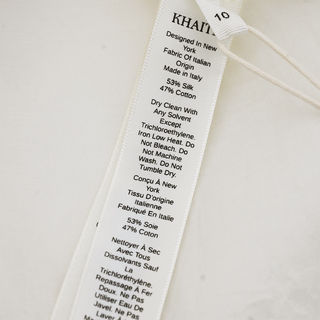 KHAIT
10
Designed In New
York
Fabric Of Italian
Origin
Made in Italy
53% Silk
47% Cotton
Dry Clean With
Any Solvent
Except
Trichloroethylene.
Iron Low Heat. Do
Not Bleach. Do
Not Machine
Wash. Do Not
Tumble Dry.
Conçu À New
York
Tissu D'origine
Italienne
Fabriqué En Italie
53% Soie
47% Coton
Nettoyer À Sec
Avec Tous
Dissolvants Sauf
La
Trichloréthylène.
Repassage À Fer
Doux. Ne Pas
Utiliser Eau De
Javel. Ne Pas
Laver À La